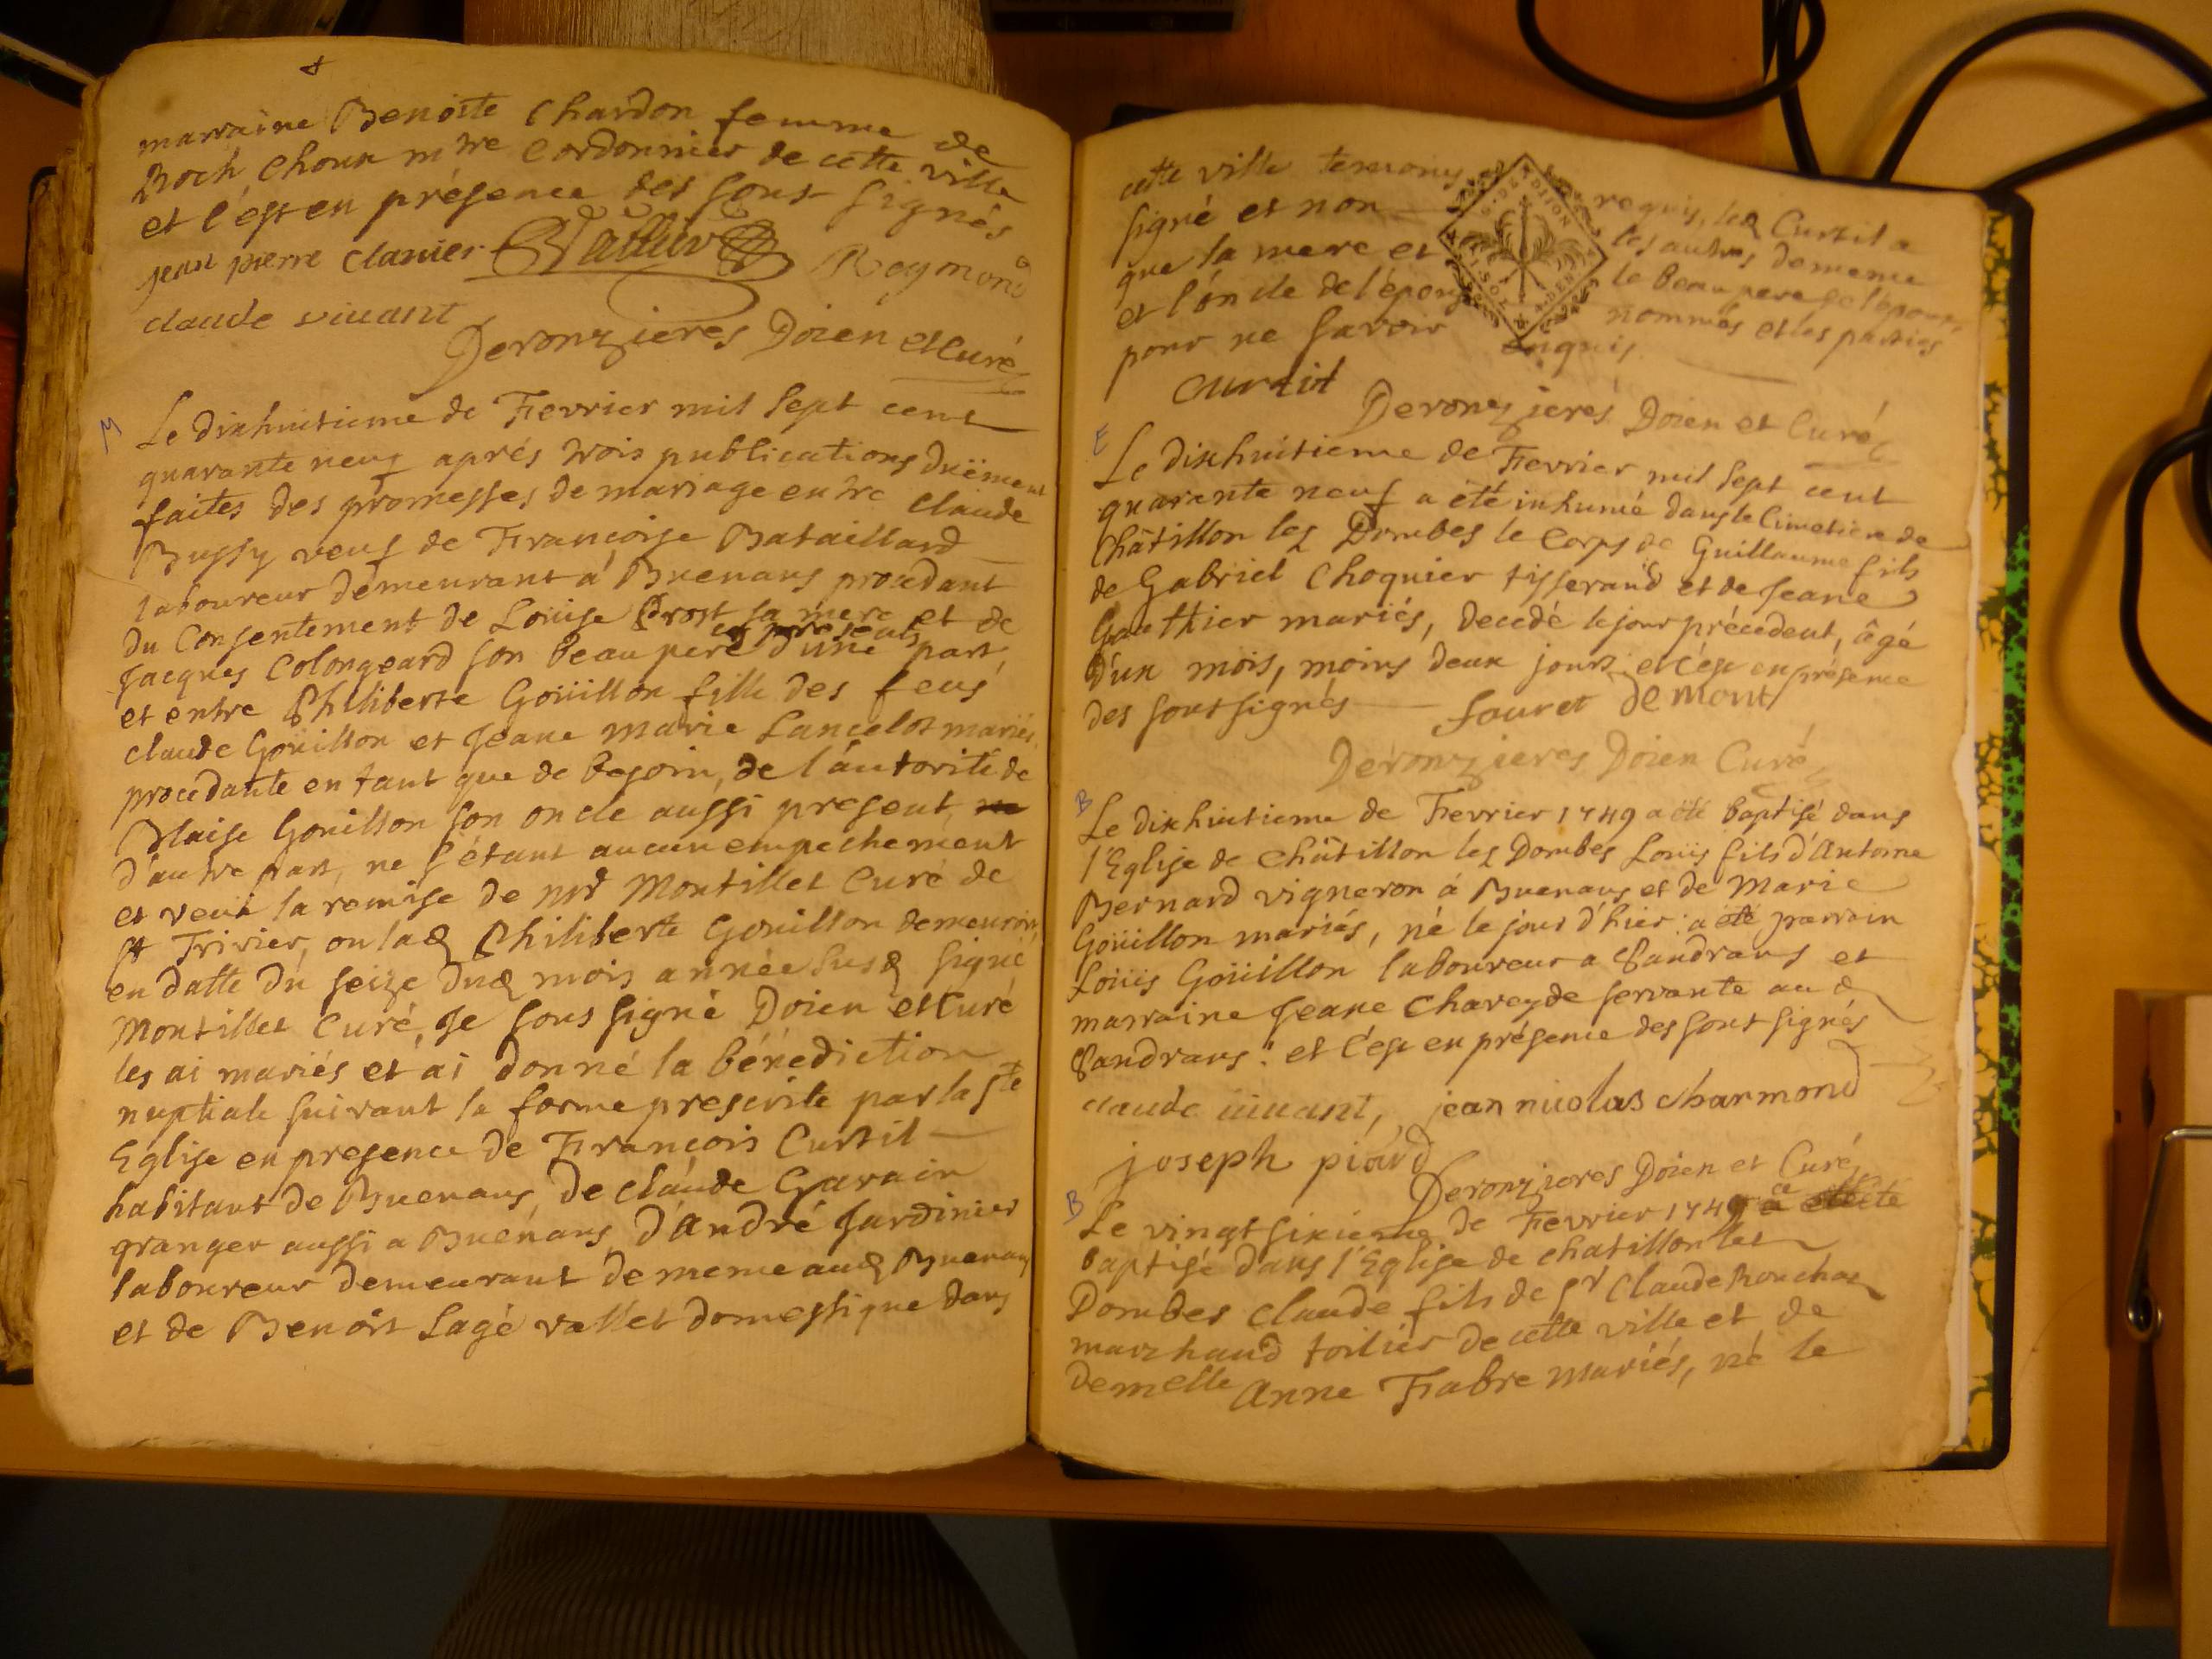 marraine Benoite Chardon femme de
Roch Choux mtre Cordonnier de cette ville
et c'est en présence des sous signés
jean pierre clanier Vallier Reymond
claude vivant
Deronzieres Doien et Curé
M
Le dixhuitieme de Fevrier mil sept cent
quarante neuf aprés trois publications duëment
faites des promesses de mariage entre Claude
Bussy veuf de Francoise Bataillard
laboureur demeurant á Buenans procedant
du Consentement de Louise Prost sa mere et de
Jacques Colongeard son beau pere cy presents d'une part
et entre Philiberte Goüillon fille des feus
Claude Goüillon et Jeane Marie Lancelot mariés
procedante en tant que de besoin, de l'autorité de
Blaise Gouillon son oncle aussi present,
d'autre part, ne s'étant aucun empechement
et veüe la remise de Mr Montillet Curé de
St Trivier, ou lad Philiberte Gouillon demeuroit
en datte du seize dud mois année susd signé
Montillet Curé, Je sous signé Doien et Curé
les ai mariés et ai donné la bénediction
nuptiale suivant la forme prescrite par la Ste
Eglise en presence de François Curtil
habitant de Buenans, de claude Gavain
granger aussi a Buenans, d'andré Jardinier
laboureur demeurant de meme aud Buenans
et de Benoit Lagé vallet domestique dans
cette ville temoins requis, led Curtil a
signé et non les autres de meme
que la mere et le beau pere de l'epoux
et l'oncle de l'épouse nommés et les parties
pour ne savoir enquis
curtil
Deronzieres Doien et Curé
E
Le dixhuitieme de Fevrier mil sept cent
quarante neuf a été inhumé dans le Cimetiere de
Châtillon les Dombes le Corps de Guillaume fils
de Gabriel Choquier tisserand et de Jeane
Gauthier mariés, decedé le jour précedent, âgé
d'un mois, moins deux jours: et c'est en présence
des sous signés fouret demont
Deronzieres Doien Curé
B
Le dixhuitieme de Fevrier 1749 a été baptisé dans
l'Eglise de Châtillon les Dombes Louis fils d'Antoine
Bernard vigneron á Buenans et de Marie
Goüillon mariés, né le jour d'hier: a été parrain
Loüis Goüillon laboureur a Sandrans et
marraine Jeane Chareyde servante au d
Sandrans: et c'est en présence des sous signés
claude vivant, jean nicolas charmond
joseph piard
Deronzieres Doien et Curé
B
Le vingt sixieme de Fevrier 1749 a été
baptisé dans l'Eglise de chatillon les
Dombes Claude fils de Sr Claude
marchand toilier de cette ville et de
demelle Anne Fabre mariés, né le